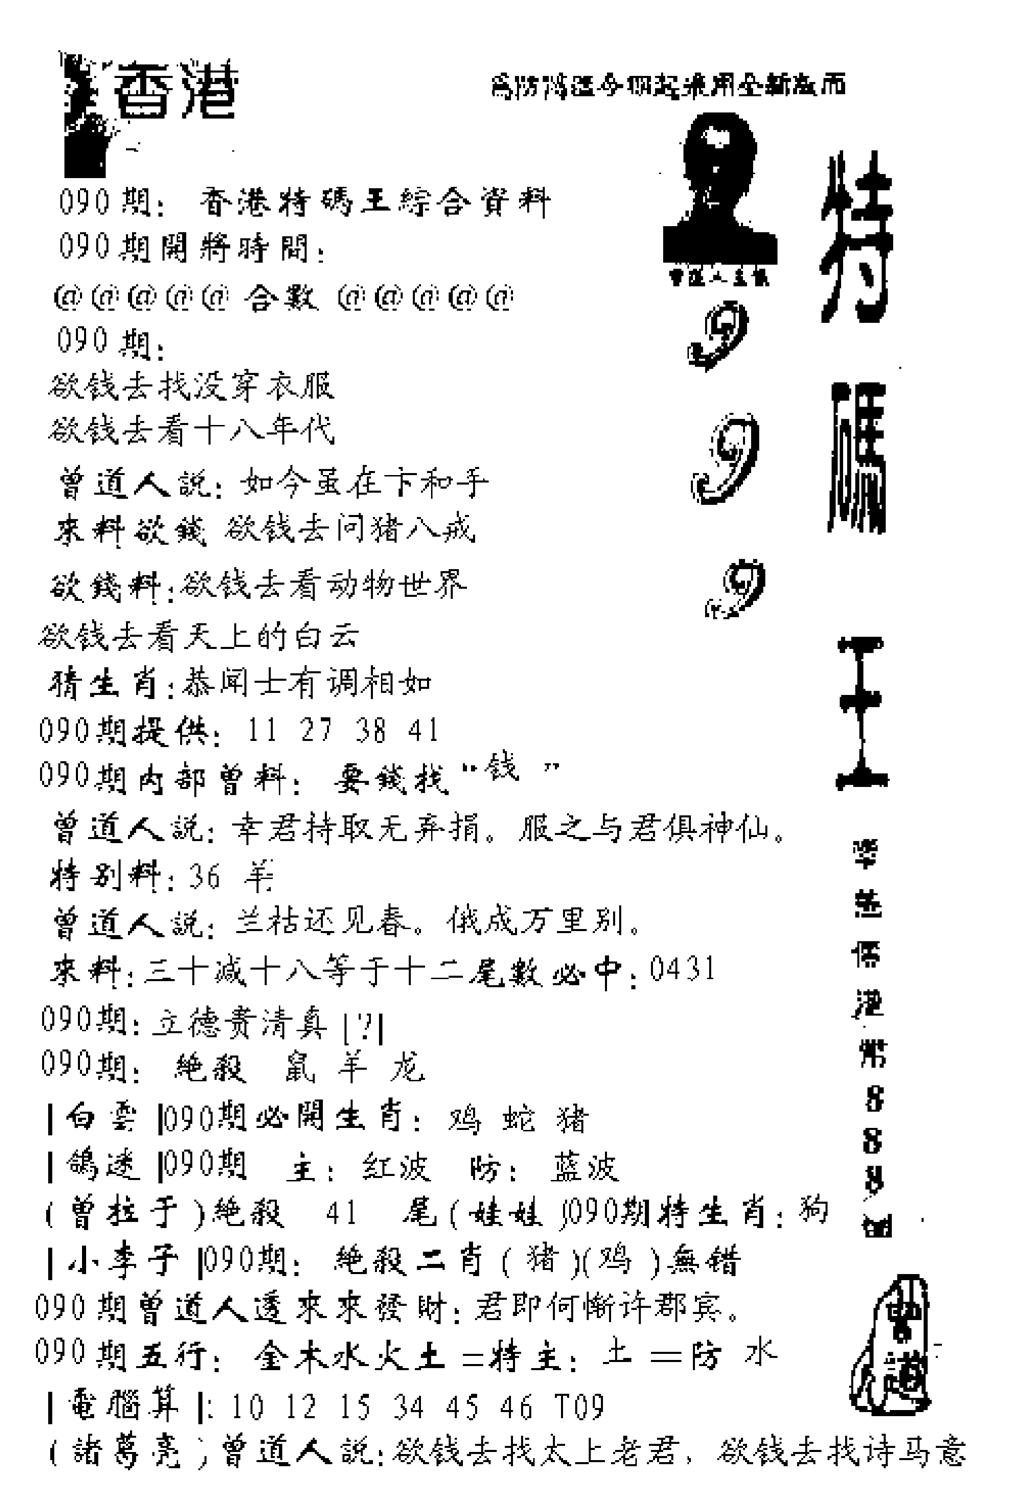 香港
為防鴻運今期起采用全新版面
090期：香港特碼王綜合資料
090期開將時間：
@@@@@合數@@@@@
090期：
欲钱去找没穿衣服
欲钱去看十八年代
曾道人說：如今虽在卞和手
來料欲錢 欲钱去问猪八戒
欲錢料：欲钱去看动物世界
欲钱去看天上的白云
猜生肖：恭闻士有调相如
090期提供：11 27 38 41
090期内部曾料：要錢找“钱”
曾道人說：幸君持取无弃捐。服之与君俱神仙。
特别料：36 羊
曾道人說：兰枯还见春。俄成万里别。
來料：三十减十八等于十二尾數必中：0431
090期：立德贵清真|?|
090期：絶殺 鼠 羊 龙
|白雲|090期必開生肖：鸡 蛇 猪
|鴿迷|090期 主：红波 防：蓝波
(曾拉于)絶殺 41 尾(娃娃)090期特生肖：狗
|小李子|090期：絶殺二肖(猪)(鸡)無錯
090期曾道人透來來發財：君即何惭许郡宾。
090期五行：金木水火土=特主：土=防 水
|電腦算|：10 12 15 34 45 46 T09
(諸葛亮)曾道人説：欲钱去找太上老君，欲钱去找诗马意
特碼王
999
港幣888
曾道